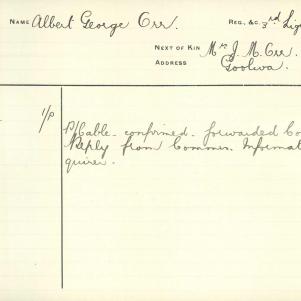 NAME Albert George Orr. REG., &C. 3rd Lig
NEXT OF KIN Mr J. M. Orr.
ADDRESS Goolwa.
1/P
P/Cable. confirmed. forwarded Co
Reply from Commrs. Informat
quirer.